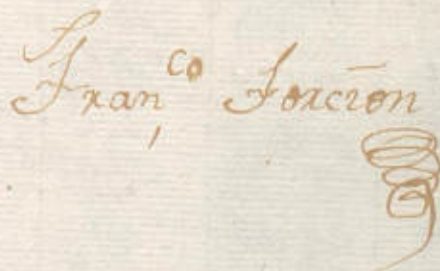 Fran,ᶜᵒ Forcion